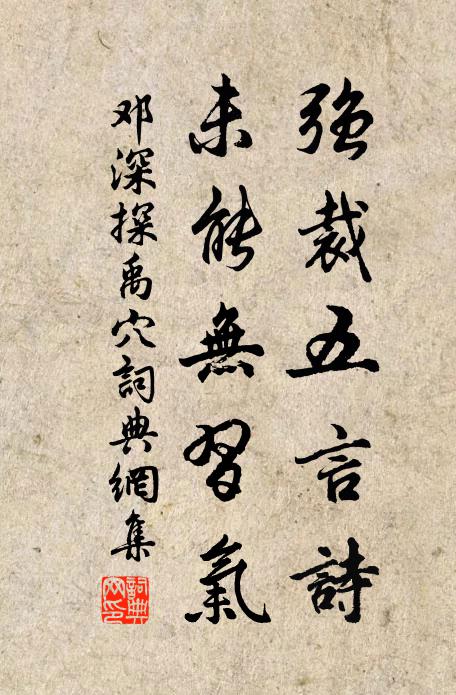 強裁五言詩
未能無習氣
邓深探禹穴詞典網集
詞典網印